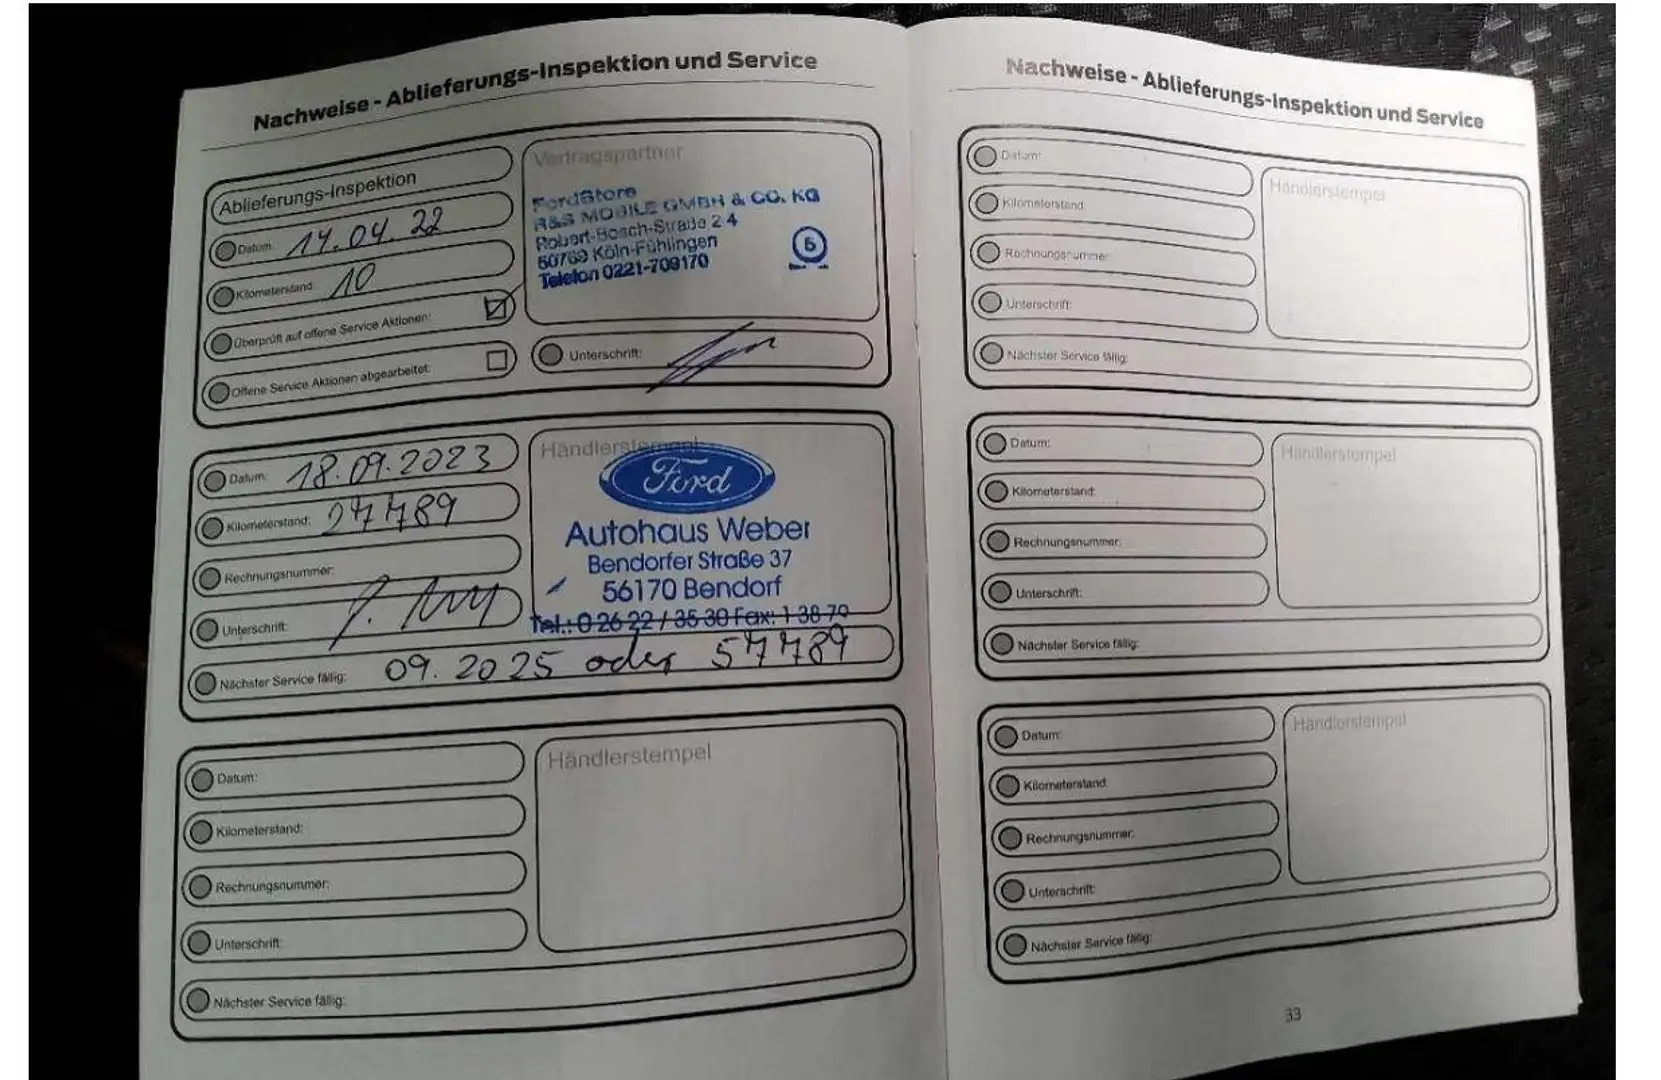 Nachweise - Ablieferungs-Inspektion und Service
Ablieferungs-Inspektion
Datum: 14.04.22
Kilometerstand: 10
Überprüft auf offene Service Aktionen:
Offene Service Aktionen abgearbeitet:
Vertragspartner
FordStore
R&S MOBILE GMBH & CO. KG
Robert-Bosch-Straße 2-4
50769 Köln-Fühlingen
Telefon 0221-709170
5
Unterschrift:
Datum: 18.09.2023
Kilometerstand: 27789
Rechnungsnummer:
Unterschrift:
Händlerstempel
Ford
Autohaus Weber
Bendorfer Straße 37
56170 Bendorf
Tel.: 0 26 22 / 35 30 Fax: 1 38 70
Nächster Service fällig: 09.2025 oder 57789
Datum:
Kilometerstand:
Rechnungsnummer:
Unterschrift:
Händlerstempel
Nächster Service fällig:
Nachweise - Ablieferungs-Inspektion und Service
Datum:
Kilometerstand:
Rechnungsnummer:
Unterschrift:
Händlerstempel
Nächster Service fällig:
Datum:
Kilometerstand:
Rechnungsnummer:
Unterschrift:
Händlerstempel
Nächster Service fällig:
Datum:
Kilometerstand:
Rechnungsnummer:
Unterschrift:
Händlerstempel
Nächster Service fällig:
33